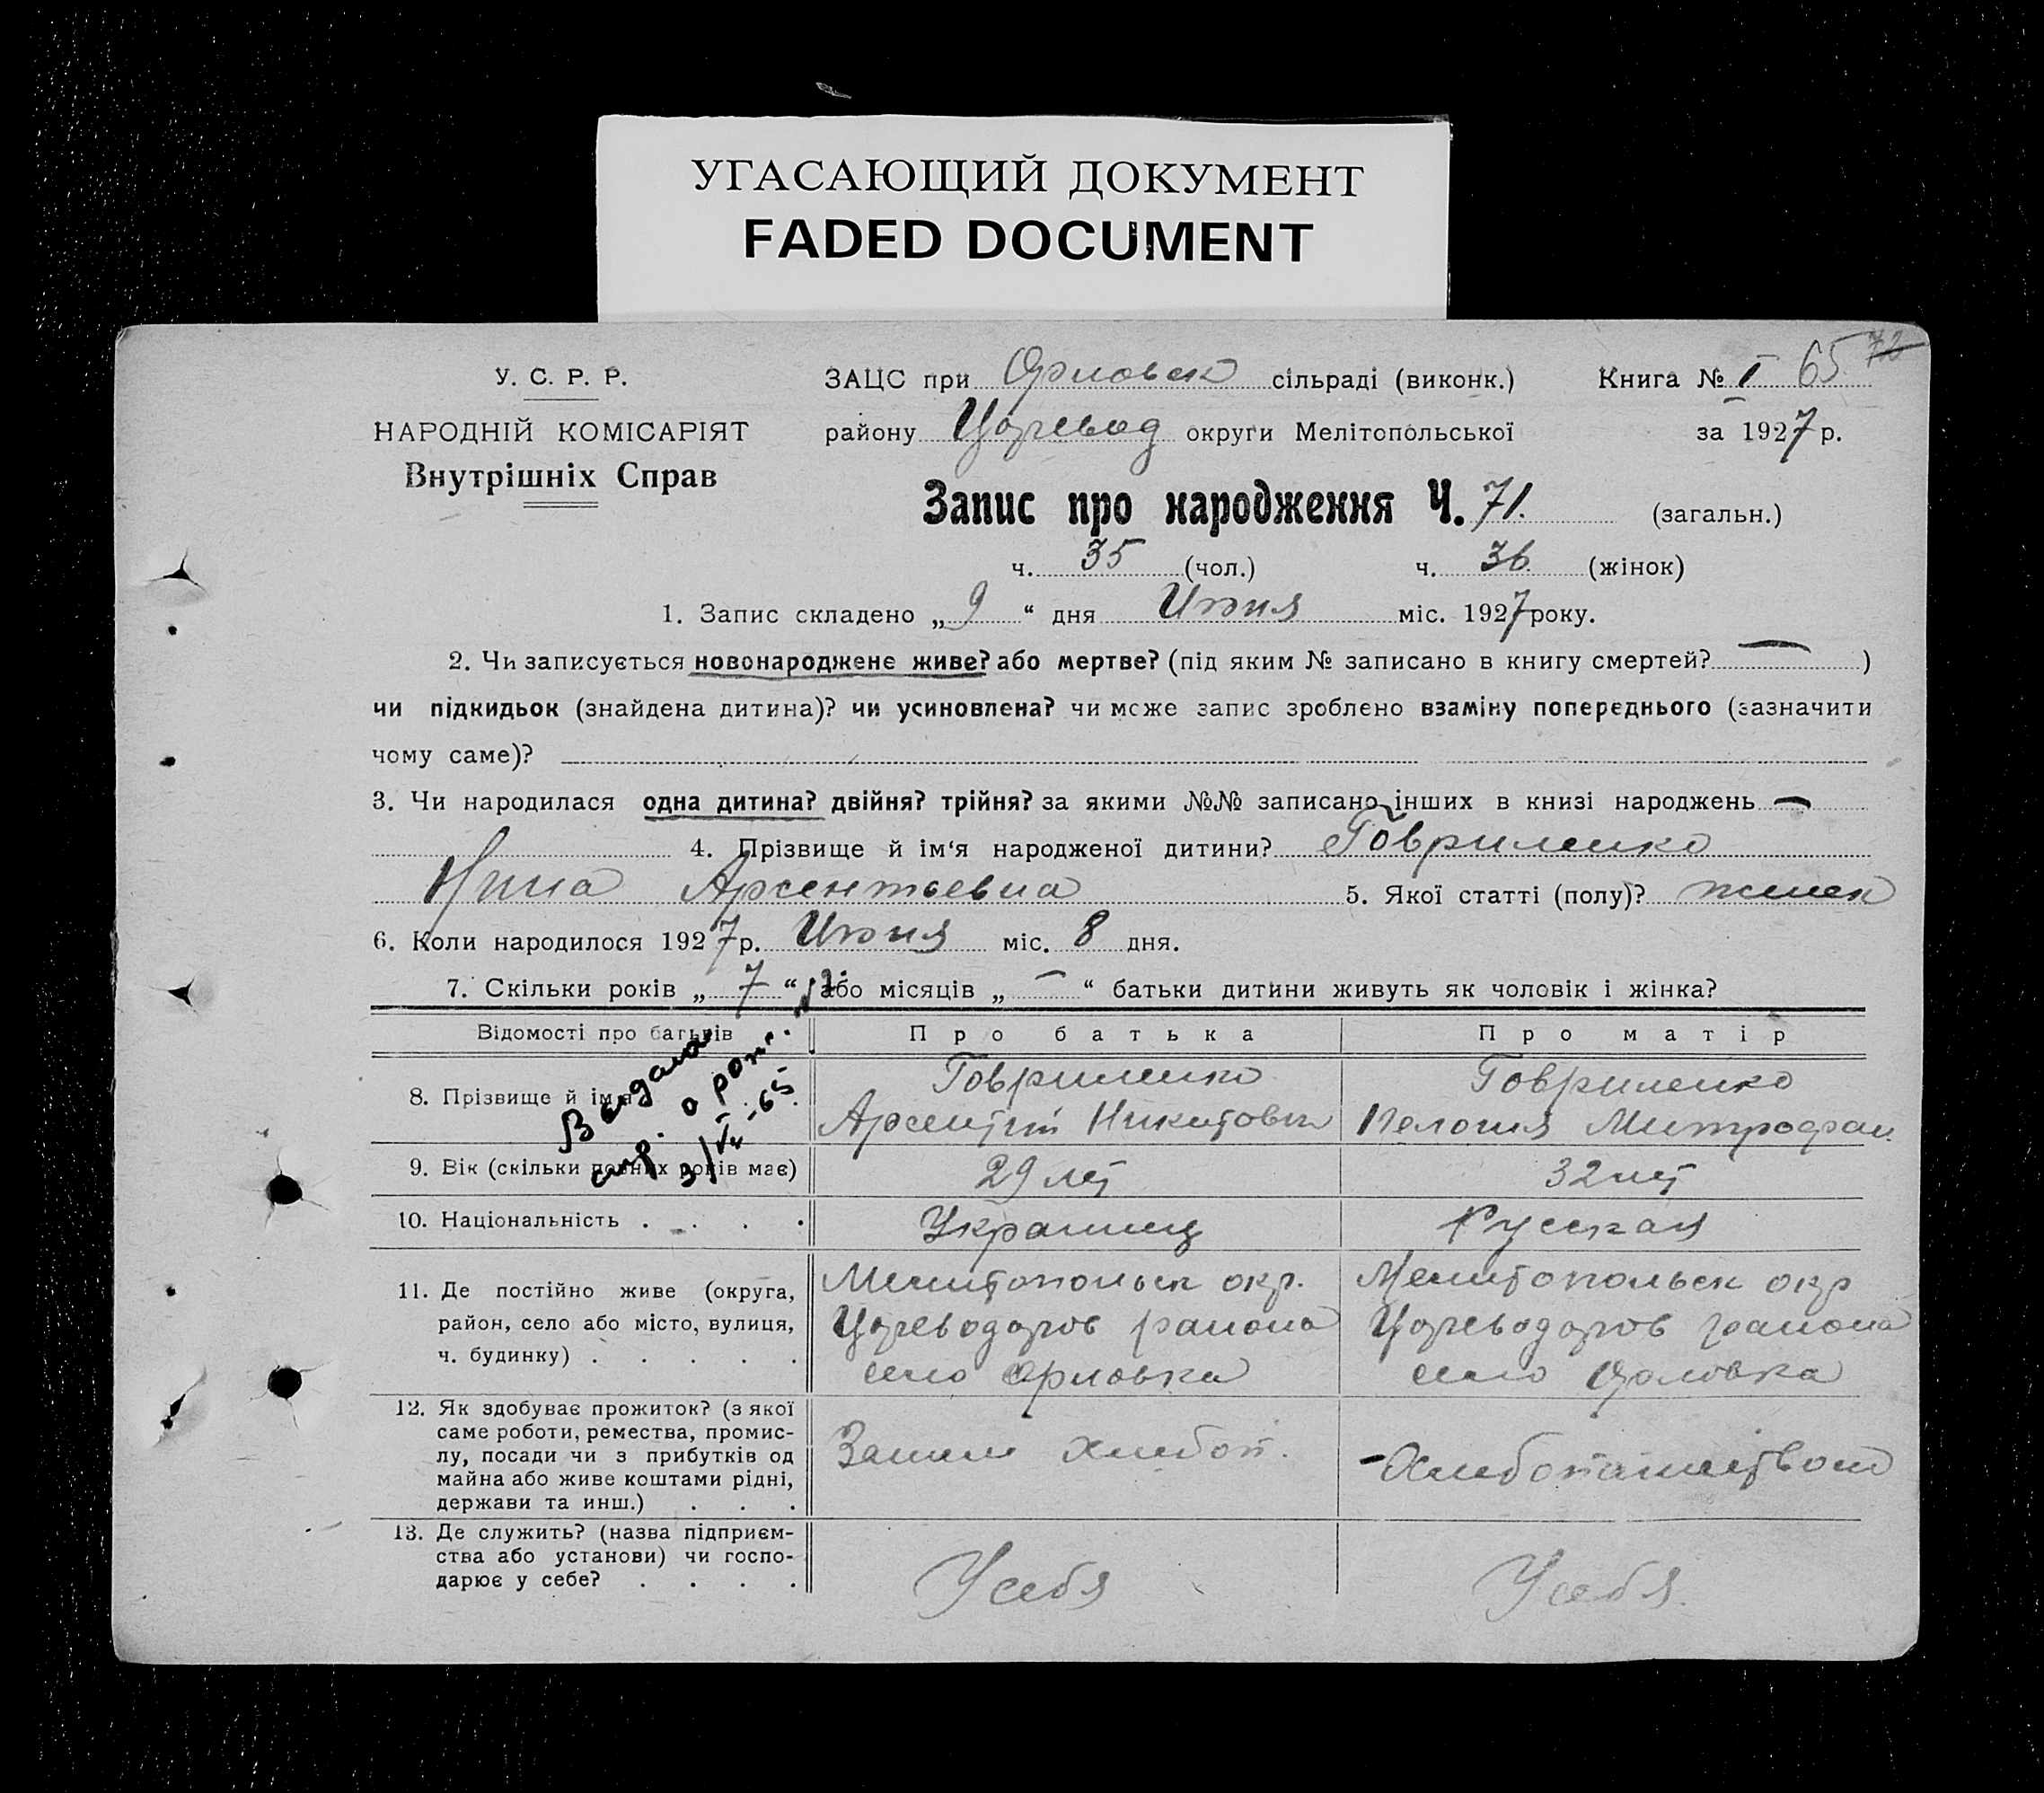 УГАСАЮЩИЙ ДОКУМЕНТ
FADED DOCUMENT
У. С. Р. Р.
НАРОДНІЙ КОМІСАРІЯТ
Внутрішніх Справ
ЗАЦС при Орловск сільраді (виконк.) Книга № I 65 72
району Царевод округи Мелітопольської за 1927 р.
Запис про народження Ч. 71. (загальн.)
ч. 35 (чол.) ч. 36 (жінок)
1. Запис складено „ 9 “ дня Июня міс. 1927 року.
2. Чи записується новонароджене живе? або мертве? (під яким № записано в книгу смертей? — )
чи підкидьок (знайдена дитина)? чи усиновлена? чи може запис зроблено взаміну попереднього (зазначити
чому саме)?
3. Чи народилася одна дитина? двійня? трійня? за якими №№ записано інших в книзі народжень —
4. Прізвище й ім‘я народженої дитини? Говриленко
Нина Арсентьевна 5. Якої статті (полу)? женск
6. Коли народилося 1927 р. Июня міс. 8 дня.
7. Скільки років „ 7 “ або місяців „ — “ батьки дитини живуть як чоловік і жінка?
Відомості про батьків Про батька Про матір
8. Прізвище й ім'я
Говриленко
Арсентий Никитович
Говриленко
Пелогия Митрофан.
Выдана
о рож.
9. Вік (скільки повних років має) 29 лет 32 лет
10. Національність . . . . Украинец Русская
11. Де постійно живе (округа,
район, село або місто, вулиця,
ч. будинку) . . . . .
Мелитопольск окр.
Цареводаров района
село Орловка
Мелитопольск окр
Цареводаров района
село Орловка
12. Як здобуває прожиток? (з якої
саме роботи, ремества, промис-
лу, посади чи з прибутків од
майна або живе коштами рідні,
держави та инш.) . . .
хлебоп.
Хлебопашеством
13. Де служить? (назва підприєм-
ства або установи) чи госпо-
дарює у себе? . . . .
У себя
У себя.